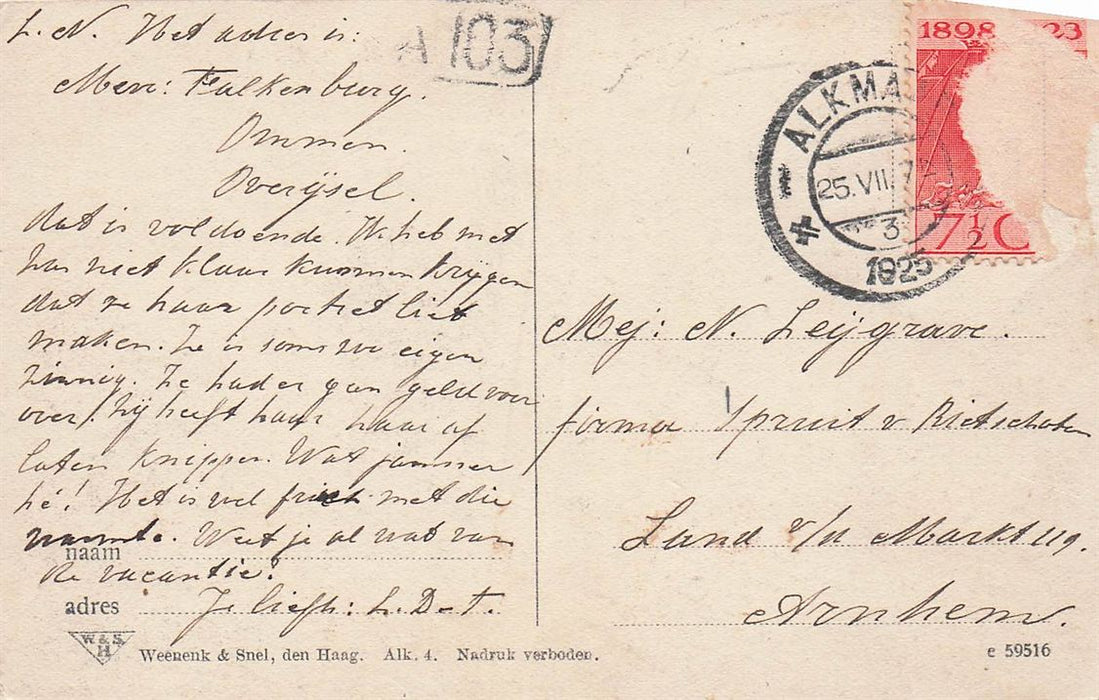 L. N. Het adres is:
Mevr: Falkenburg.
Ommen.
Overijsel.
dat is voldoende. Ik heb met
har niet klaar kunnen krijgen
dat ze haar portret liet
maken. Ze is soms zoo eigen
zinnig. Ze had er gan geld voor
over! Zij heeft haar haar af
laten knippen. Wat jammer
hé! Het is wel frisch met die
warmte. Weet je al wat van
de vacantie?
Je liefh: L. D-t.
naam
adres
W & S.
H
Weenenk & Snel, den Haag. Alk. 4. Nadruk verboden.
A 103
1898 23
7½ C
ALKMA
25.VII.
3
1925
Mej: N. Leijgrave.
firma Spruit v Rietschoten
Land v/d Markt 119.
Arnhem.
e 59516